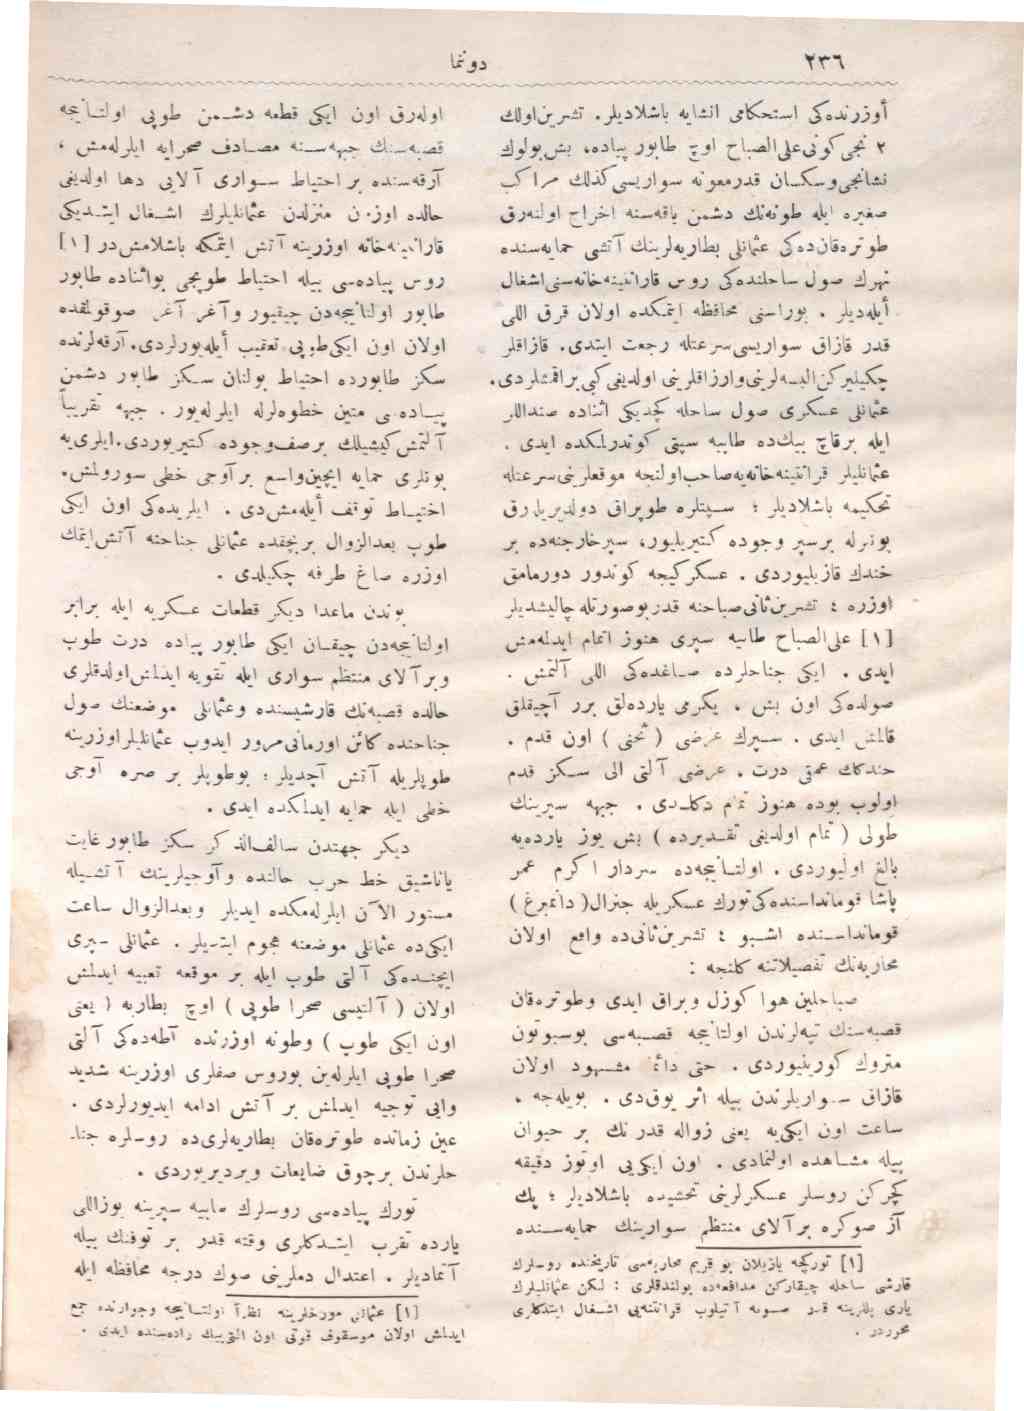 ٢٣٦
دوننما
أوزرنده‌كی استحكامی انشایه باشلادیلر. تشرین‌اول‌ك
٢ نجی كونی علی‌الصباح اوچ طابور پیاده، بش بولوك
نشانجی‌وسكسان قدر معونه سواریسی كذلك مراكب
صغیره ایله طونه‌نك دشمن یاقه‌سنه اخراج اولنه‌رق
طوتره‌قان‌ده‌كی عثمانلی بطاریه‌لرینك آتشی حمایه‌سنده
نهرك صول ساحلنده‌كی روس قارانتینه‌خانه‌سنی اشغال
أیله‌دیلر . بوراسنی محافظه ایتمكده اولان قرق اللی
قدر قازاق سواریسی سرعتله رجعت ایتدی. قازاقلر
چكیلیركن البسه‌لرینی وارزاقلرینی اولدیغی كبی براقمشلردی.
عثمانلی عسكری صول ساحله كچدیكی اثناده صنداللر
ایله برقاچ بیك‌ده طابیه سپتی كوندرلمكده ایدی .
عثمانلیلر قرانتینه‌خانه‌یه صاحب اولنجه موقعلرینی سرعتله
تحكیمه باشلادیلر ؛ سپتلره طوپراق دولدیریلارق
بونرله برسپر وجوده كتیریلیور، سپرخارجنه‌ده بر
خندك قازیلیوردی . عسكر كیجه كوندوز دورمامق
اوزره ٤ تشرین‌ثانی صباحنه قدر بوصورتله چالیشدیلر
[١] علی‌الصباح طابیه سپری هنوز اتمام ایدلمه‌مش
ایدی . ایكی جناحلرده صاغده‌كی اللی آلتمش .
صولده‌كی اون بش . یكرمی یارده‌لق برر آچیقلق
قالمش ایدی . سپرك عرضی ( ثخنی ) اون قدم .
خندكك عمقی درت . عرضی آلتی الی سكز قدم
اولوب بوده هنوز تمام دكلدی . جبهه سپرینك
طولی ( تمام اولدیغی تقدیرده ) بش یوز یارده‌یه
بالغ اولیوردی . اولتانیجه‌ده سردار اكرم عمر
پاشا قومانداسنده‌كی تورك عسكریله جنرال ( دانبرغ )
قومانداسنده اشبو ٤ تشرین‌ثانی‌ده واقع اولان
محاربه‌نك تفصیلاتنه كلنجه :
صباحلین هوا كوزل وبراق ایدی وطوتره‌قان
قصبه‌سنك تپه‌لرندن اولتانیجه قصبه‌سی بوسبوتون
متروك كورینیوردی . حتی دائما مشهود اولان
قازاق سواریلرندن بیله اثر یوق‌دی . بویله‌جه .
ساعت اون ایكی‌یه یعنی زواله قدر تك بر حیوان
بیله مشاهده اولنمادی . اون ایكی‌یی اوتوز دقیقه
كچركن روسلر عسكرلرینی تحشیده باشلادیلر ؛ پك
آز صوكره برآلای منتظم سوارینك حمایه‌سنده
[١] توركچه یازیلان بو قریم محاربه‌سی تاریخنده روسلرك
قارشی ساحله چیقاركن مدافعه‌ده بولندقلری : لكن عثمانلیلرك
یاری بللرینه قدر صویه آتیلوب قرانتنه‌یی اشغال ایتدكلری
محرردر .
اوله‌رق اون ایكی قطعه دشمن طوپی اولتانیجه
قصبه‌سنك جبهه‌سنه مصادف صحرایه ایلرله‌مش ،
آرقه‌سنده بر احتیاط سواری آلایی دها اولدیغی
حالده اوزون منزلدن عثمانلیلرك اشغال ایتدیكی
قارانتینه‌خانه اوزرینه آتش ایتمكه باشلامش‌در [١]
روس پیاده‌سی بیله احتیاط طوپجی بواثناده طابور
طابور اولتانیجه‌دن چیقیور وآغر آغر صوقولمقده
اولان اون ایكی طوپی تعقیب أیله‌یورلردی. آرقه‌لرنده
سكز طابورده احتیاط بولنان سكز طابور دشمن
پیاده‌سی متین خطوه‌لرله ایلرله‌یور . جبهه تقریباً
آلتمش كیشیلك برصف وجوده كتیریوردی. ایلری‌یه
بونلری حمایه ایچین‌واسع بر آوجی خطی سورولمش.
احتیاط توقف أیله‌مش‌دی . ایلریده‌كی اون ایكی
طوپ بعدالزوال بربچقده عثمانلی جناحنه آتش ایتمك
اوزره صاغ طرفه چكیلدی .
بوندن ماعدا دیكر قطعات عسكریه ایله برابر
اولتانیجه‌دن چیقان ایكی طابور پیاده درت طوپ
وبرآلای منتظم سواری ایله تقویه ایدلمش اولدقلری
حالده قصبه‌نك قارشیسنده وعثمانلی موضعنك صول
جناحنده كائن اورمانی مرور ایدوب عثمانلیلر اوزرینه
طوپلریله آتش آچدیلر ؛ بوطوپلر بر صره آوجی
خطی ایله حمایه ایدلمكده ایدی .
دیكر جهتدن سالف‌الذكر سكز طابور غایت
یاناشیق خط حرب حالنده وآوجیلرینك آتشیله
مستور الآن ایلرله‌مكده ایدیلر وبعدالزوال ساعت
ایكی‌ده عثمانلی موضعنه هجوم ایتدیلر . عثمانلی سپری
ایچنده‌كی آلتی طوپ ایله بر موقعه تعبیه ایدلمش
اولان ( آلتیسی صحرا طوپی ) اوچ بطاریه ( یعنی
اون ایكی طوپ ) وطونه اوزرنده آطه‌ده‌كی آلتی
صحرا طوپی ایلرله‌ین بوروس صفلری اوزرینه شدید
وایی توجیه ایدلمش بر آتش ادامه ایدیورلردی .
عین زمانده طوتره‌قان بطاریه‌لری‌ده روسلره جنا-
حلرندن برچوق ضایعات ویردیریوردی .
تورك پیاده‌سی روسلرك طابیه سپرینه یوزاللی
یارده تقرب ایتدكلری وقته قدر بر توفنك بیله
آتمادیلر . اعتدال دملرینی صوك درجه محافظه ایله
[١] عثمانلی مورخلرینه نظراً اولتانیجه وجوارنده جمع
ایدلمش اولان موسقوف قوتی اون التی‌بیك راده‌سنده ایدی .